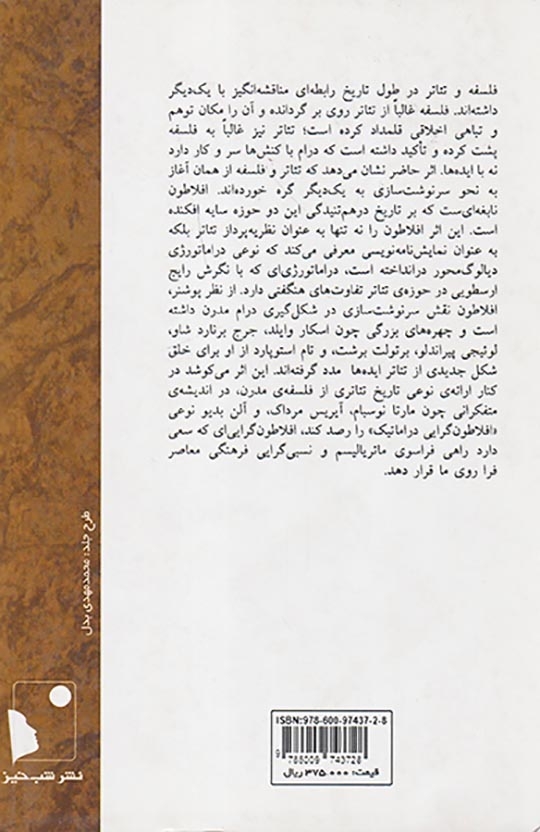 فلسفه و تئاتر در طول تاریخ رابطه‌ای مناقشه‌انگیز با یک‌دیگر
داشته‌اند. فلسفه غالباً از تئاتر روی بر گردانده و آن را مکان توهم
و تباهی اخلاقی قلمداد کرده است؛ تئاتر نیز غالباً به فلسفه
پشت کرده و تأکید داشته است که درام با کنش‌ها سر و کار دارد
نه با ایده‌ها. اثر حاضر نشان می‌دهد که تئاتر و فلسفه از همان آغاز
به نحو سرنوشت‌سازی به یک‌دیگر گره خورده‌اند. افلاطون
نابغه‌ای‌ست که بر تاریخ درهم‌تنیدگی این دو حوزه سایه افکنده
است. این اثر افلاطون را نه تنها به عنوان نظریه‌پرداز تئاتر بلکه
به عنوان نمایش‌نامه‌نویسی معرفی می‌کند که نوعی دراماتورژی
دیالوگ‌محور درانداخته است، دراماتورژی‌ای که با نگرش رایج
ارسطویی در حوزه‌ی تئاتر تفاوت‌های هنگفتی دارد. از نظر پوشنر،
افلاطون نقش سرنوشت‌سازی در شکل‌گیری درام مدرن داشته
است و چهره‌های بزرگی چون اسکار وایلد، جرج برنارد شاو،
لوئیجی پیراندلو، برتولت برشت، و تام استوپارد از او برای خلق
شکل جدیدی از تئاتر ایده‌ها مدد گرفته‌اند. این اثر می‌کوشد در
کنار ارائه‌ی نوعی تاریخ تئاتری از فلسفه‌ی مدرن، در اندیشه‌ی
متفکرانی چون مارتا نوسبام، آیریس مرداک، و آلن بدیو نوعی
«افلاطون‌گرایی دراماتیک» را رصد کند، افلاطون‌گرایی‌ای که سعی
دارد راهی فراسوی ماتریالیسم و نسبی‌گرایی فرهنگی معاصر
فرا روی ما قرار دهد.
طرح جلد: محمدمهدی بدل
نشر شب‌خیز
ISBN: 978-600-97437-2-8
9 786009 743728
قیمت: ۳۷۵۰۰۰ ریال